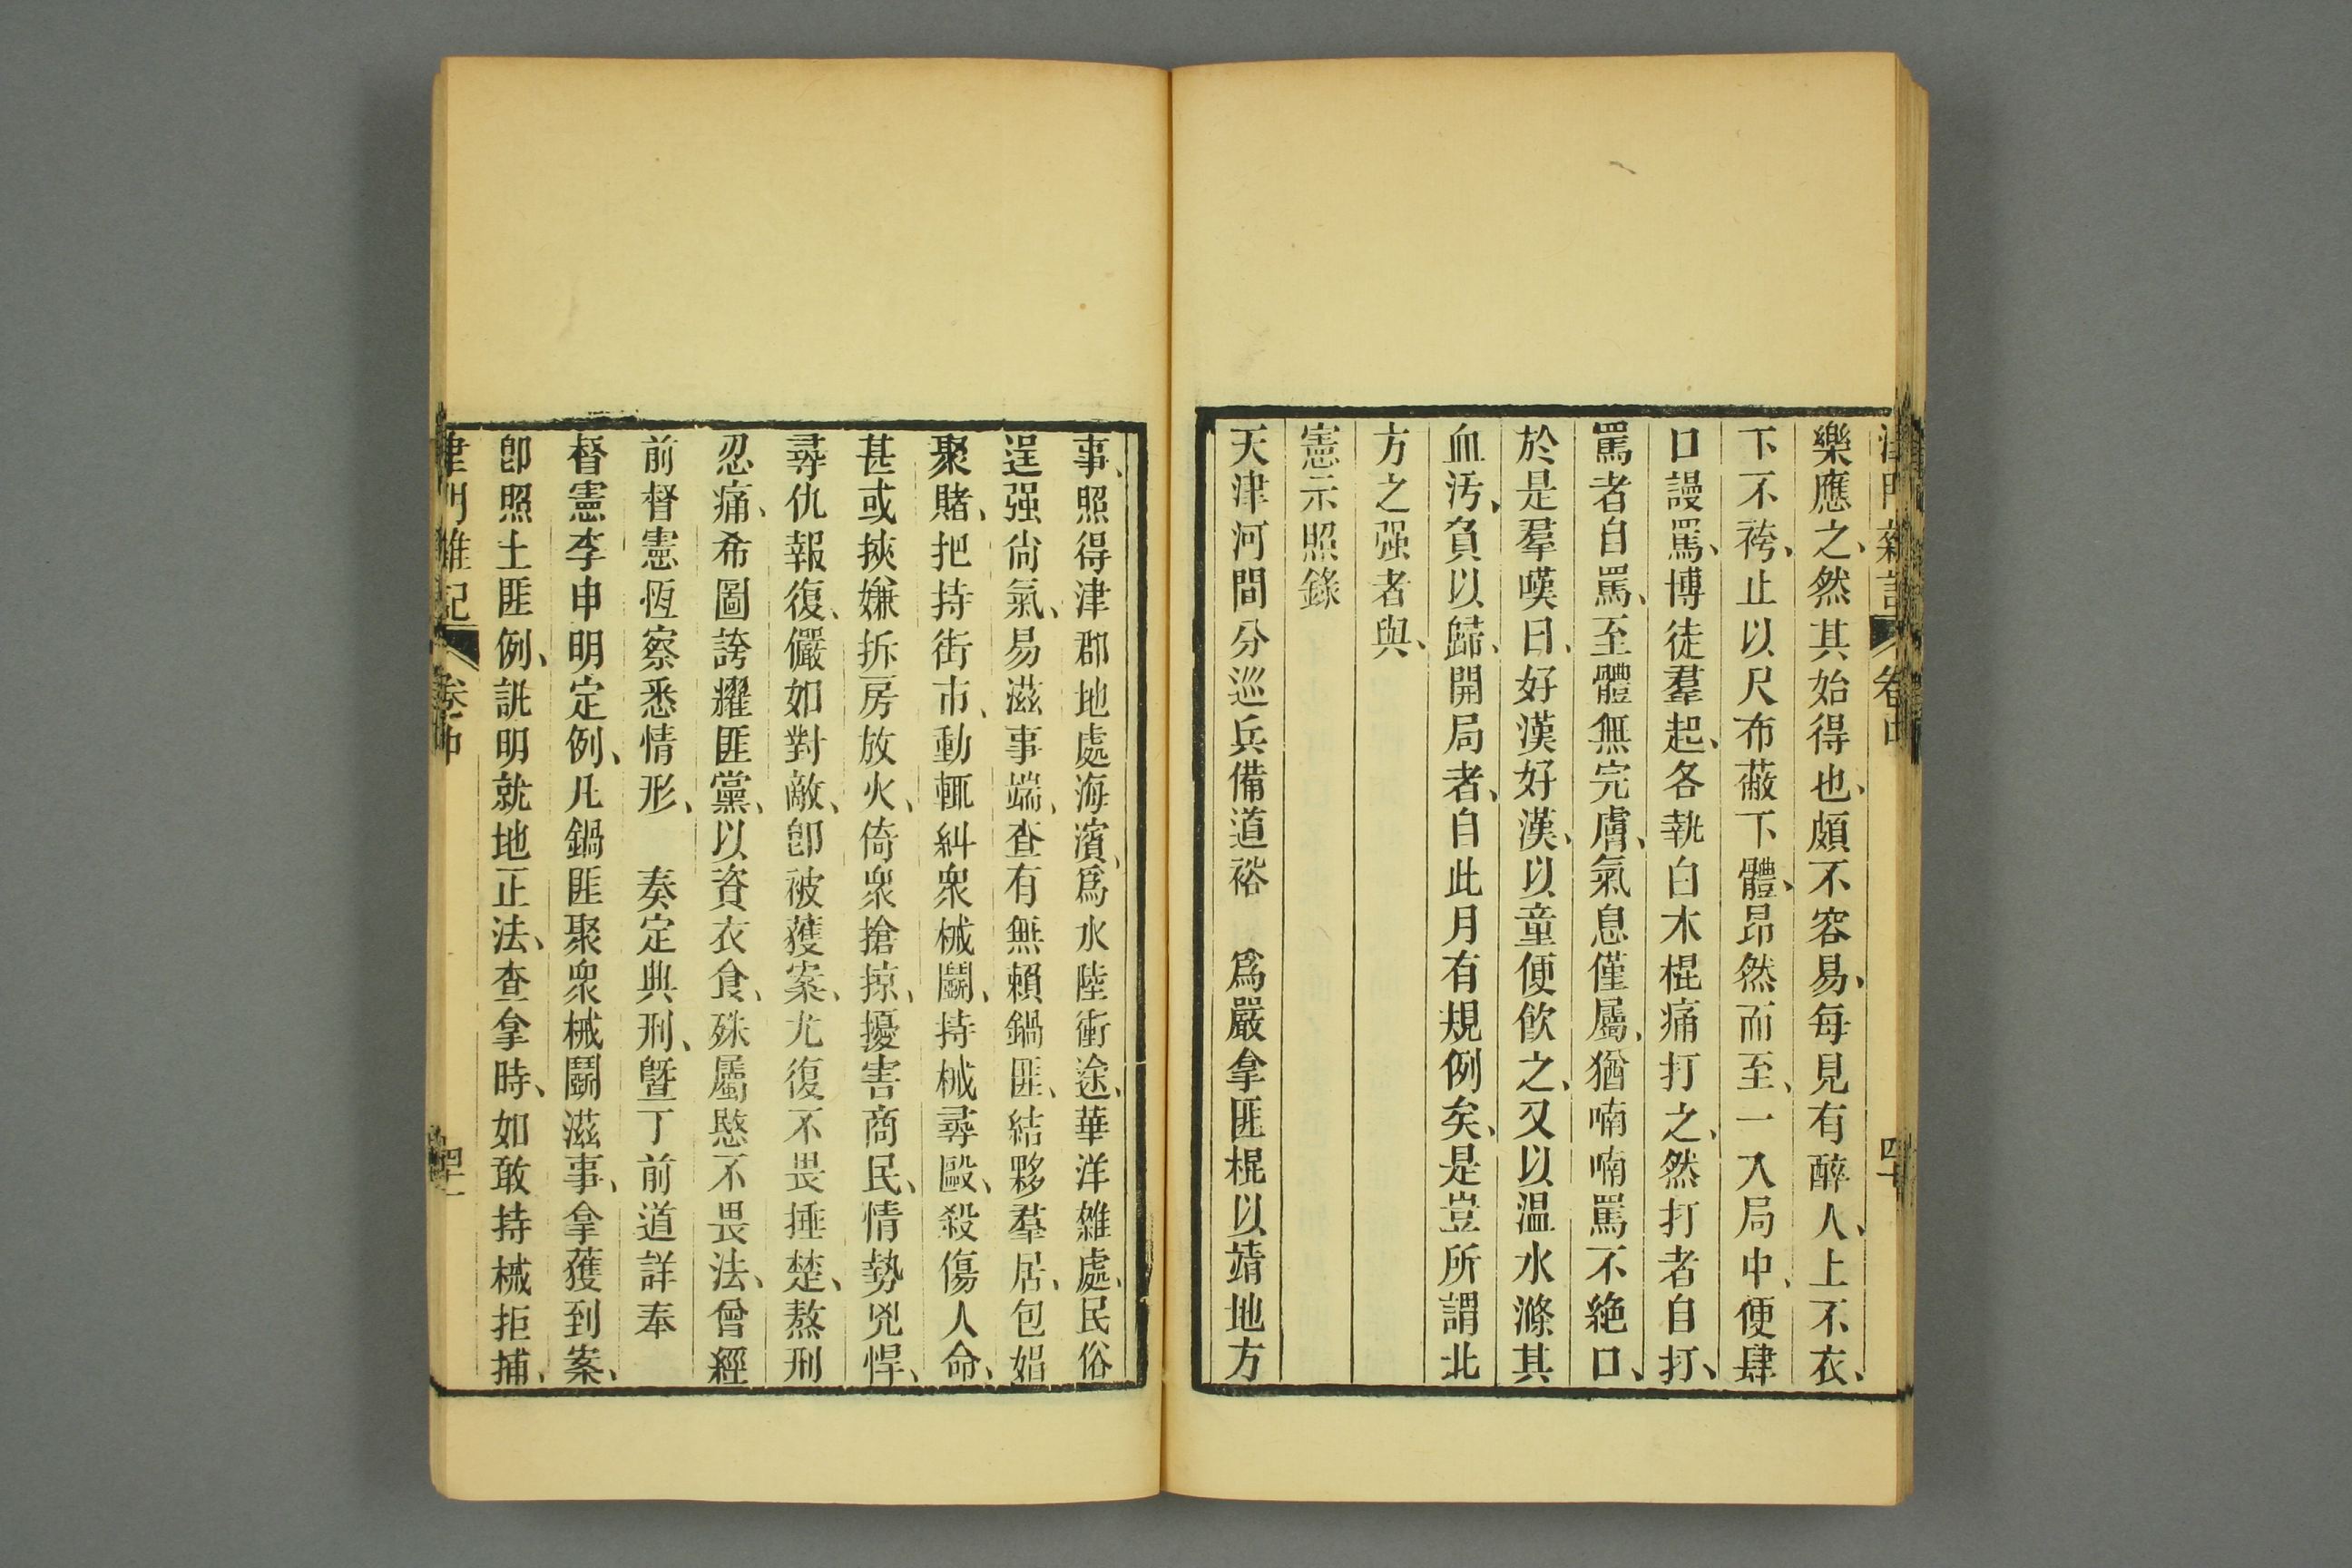 樂應之、然其始得也、頗不容易、每見有醉人、上不衣、
下不袴、止以尺布蔽下體、昂然而至、一入局中、便肆
口謾罵、博徒羣起、各執白木棍痛打之、然打者自打、
罵者自罵、至體無完膚、氣息僅屬、猶喃喃罵不絶口、
於是羣嘆曰、好漢好漢、以童便飲之、又以温水滌其
血汚、負以歸、開局者、自此月有規例矣、是豈所謂北
方之强者與、
憲示照錄
天津河間分巡兵備道裕　爲嚴拿匪棍以靖地方
事、照得津郡地處海濱、爲水陸衝途、華洋雜處、民俗
逞强尙氣、易滋事端、查有無賴鍋匪、結夥羣居、包娼
聚賭、把持街市、動輒糾衆械鬬、持械尋毆、殺傷人命、
甚或挾嫌拆房放火、倚衆搶掠、擾害商民、情勢兇悍、
尋仇報復、儼如對敵、卽被獲案、尤復不畏捶楚、熬刑
忍痛、希圖誇耀匪黨、以資衣食、殊屬愍不畏法、曾經
前督憲恆察悉情形、　奏定典刑、曁丁前道詳奉
督憲李申明定例、凡鍋匪聚衆械鬬滋事、拿獲到案、
卽照土匪例、訊明就地正法、查拿時、如敢持械拒捕、
津門雜記　卷中　四十一